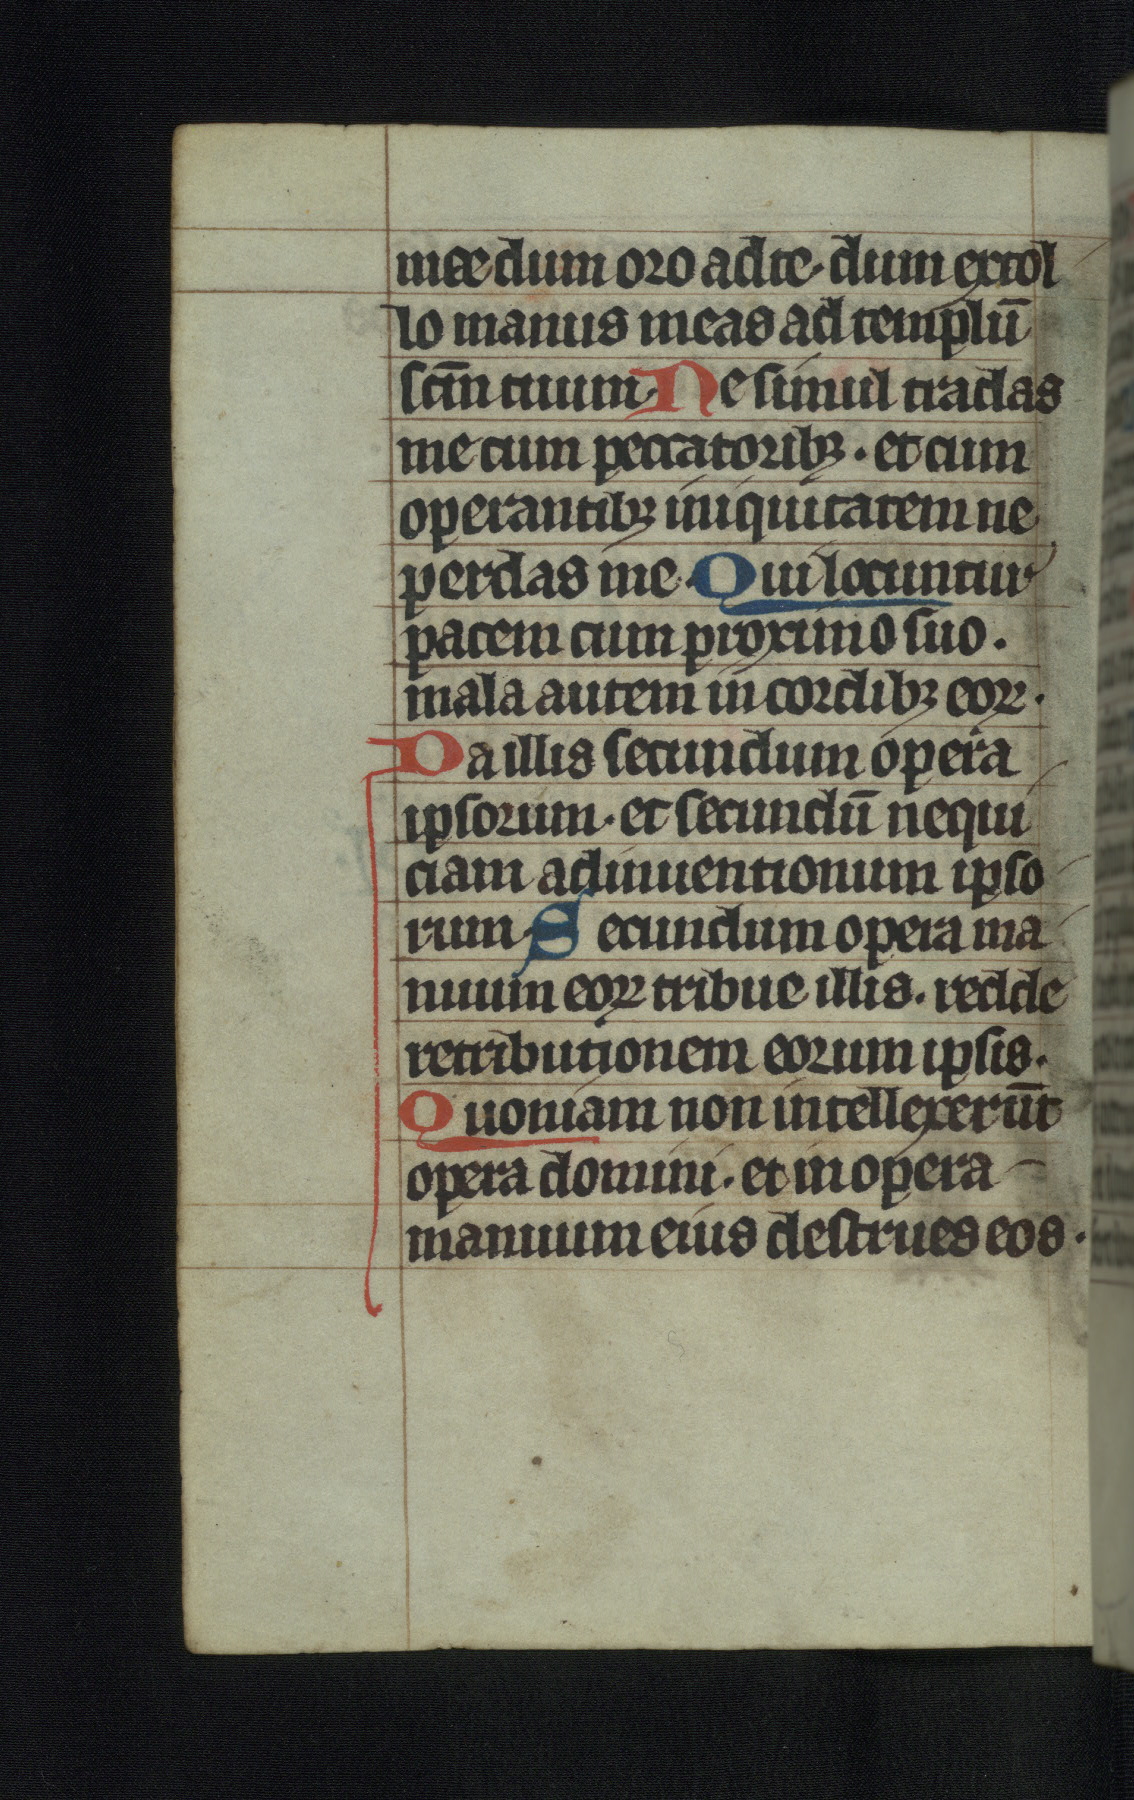 meae dum oro ad te. dum extol
lo manus meas ad templū
sc̄m tuum. Ne simul tradas
me cum peccatoribꝫ. et cum
operantibꝫ iniquitatem ne
perdas me. Qui locuntur
pacem cum proximo suo.
mala autem in cordibꝫ eoꝝ.
Da illis secundum opera
ipsorum. et secundū nequi
ciam adinuentionum ipso
rum. Secundum opera ma
nuum eoꝝ tribue illis. redde
retributionem eorum ipsis.
Quoniam non intellexerūt
opera domini. et in opera
manuum eius destrues eos.